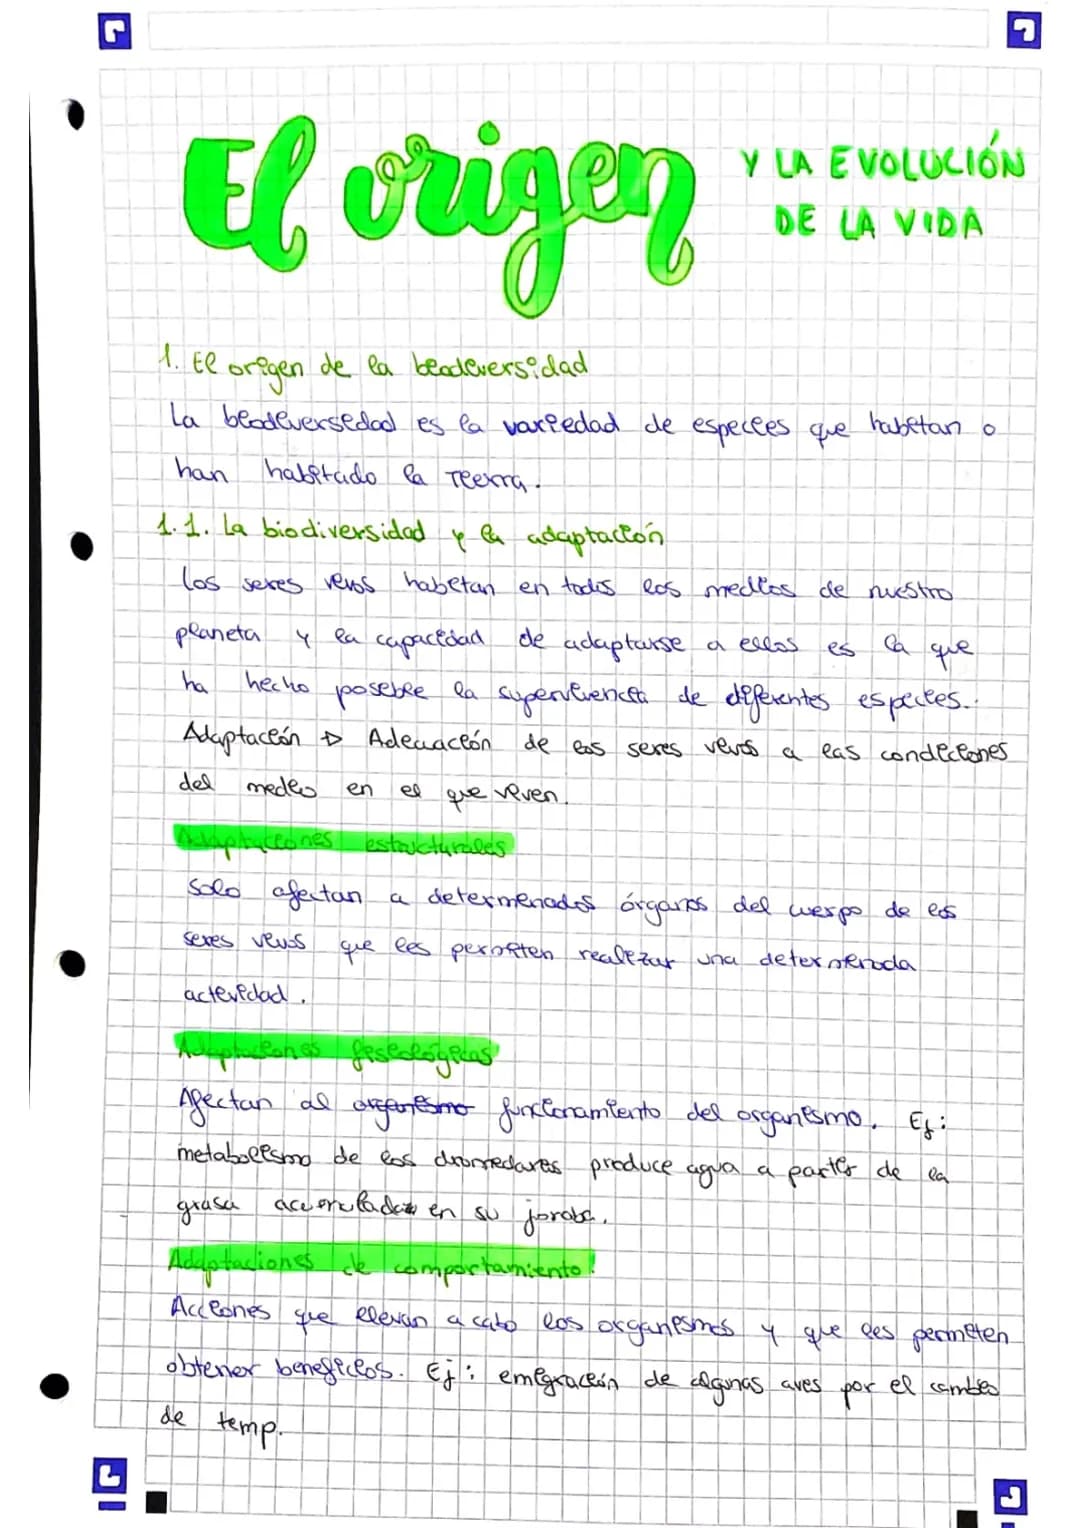 El origen Y LA EVOLUCIÓN
DE LA VIDA
1. El origen de la biodiversidad
La biodiversidad es la variedad de especies que habitan o
han habitado la Tierra.
1.1. La biodiversidad y la adaptación
Los seres vivos habitan en todos los medios de nuestro
planeta y la capacidad de adaptarse a ellos es la que
ha hecho posible la supervivencia de diferentes especies.
Adaptación → Adecuación de los seres vivos a las condiciones
del medio en el que viven.
Adaptaciones estructurales
Solo afectan a determinados órganos del cuerpo de los
seres vivos que les permiten realizar una determinada
actividad.
Adaptaciones fisiológicas
Afectan al organismo funcionamiento del organismo. Ej:
metabolismo de los dromedarios produce agua a partir de la
grasa acumulada en su joroba.
Adaptaciones de comportamiento:
Acciones que llevan a cabo los organismos y que les permiten
obtener beneficios. Ej: emigración de algunas aves por el cambio
de temp.